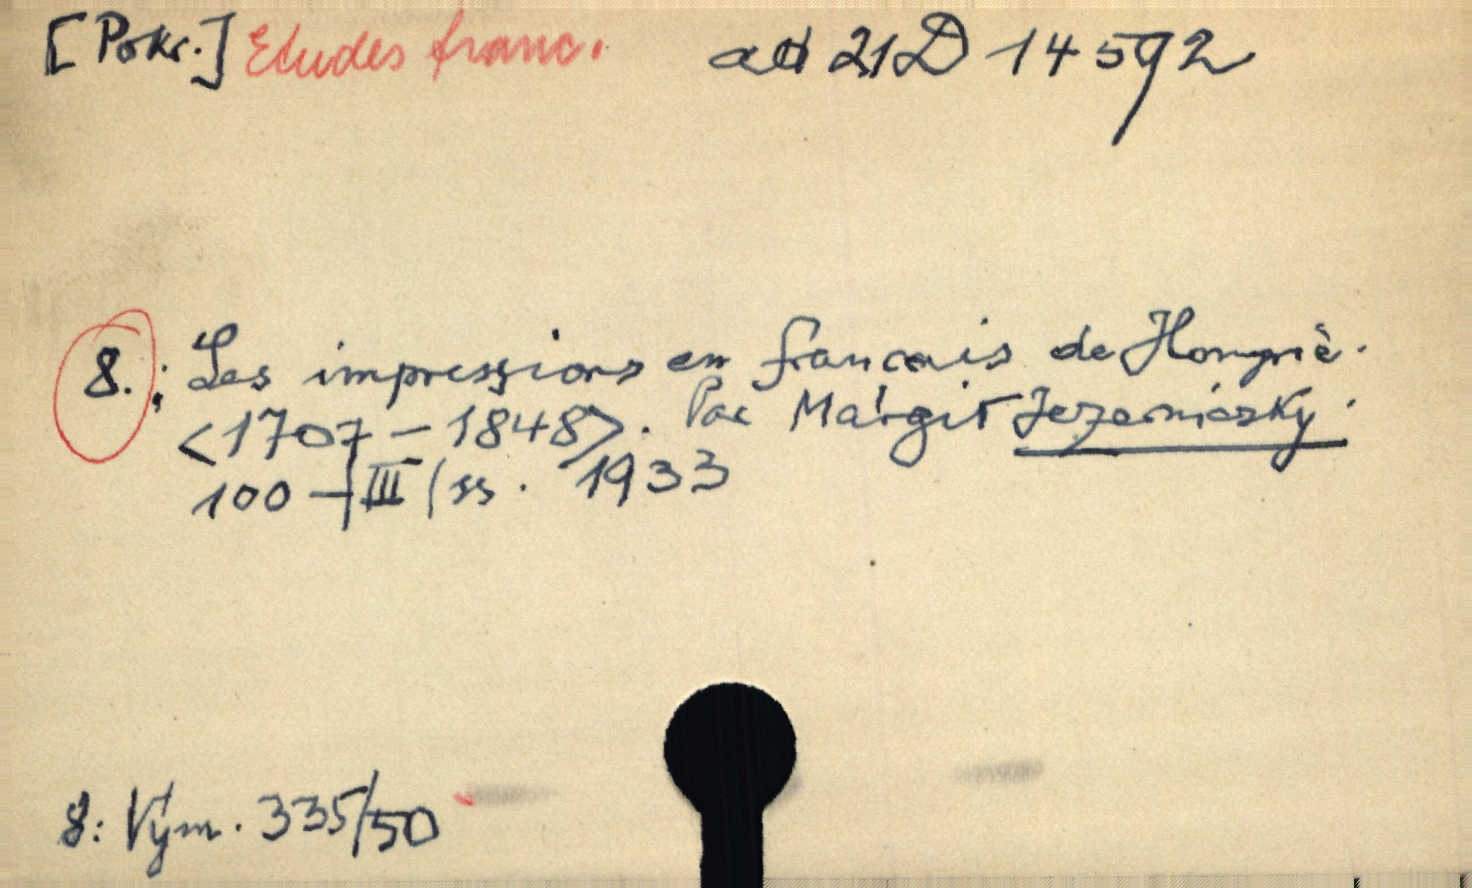 [Pokr.] Etudes franc. ad 21 D 14592
8.: Les impressions en francais de Hongriè.
<1707 – 1848>. Par Margit Jezerniczky.
100 + |III| ss. 1933
8: Vým. 335/50